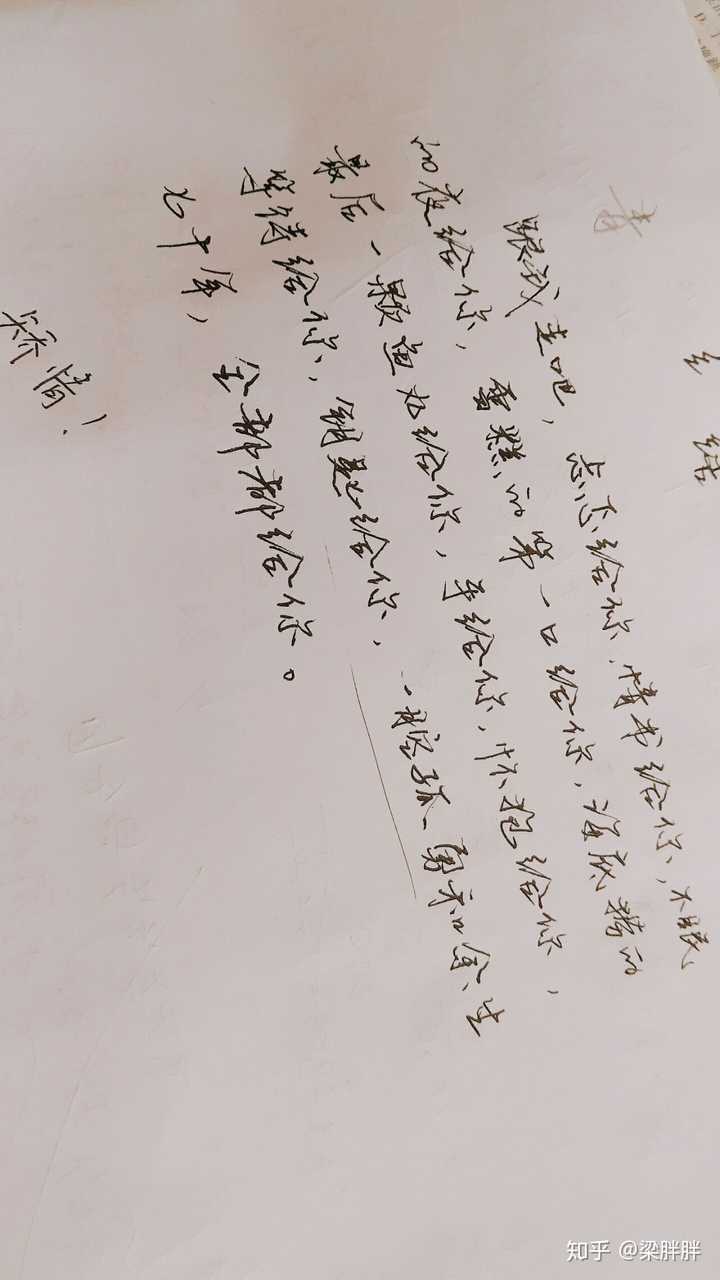 结
跟我走吧，忐忑给你，情书给你，不眠
的夜给你，雪糕的第一口给你，海底捞的
最后一颗鱼丸给你，手给你，怀抱给你，
等待给你，钥匙给你，一腔孤勇和余生
七十年，全部都给你。
矫情！
知乎 @梁胖胖